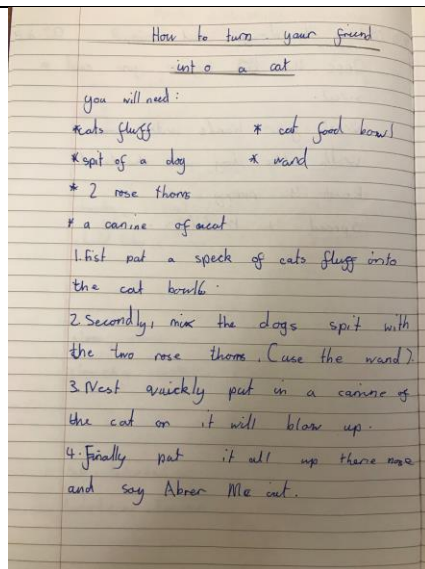 How to turn your friend
into a cat
you will need:
*cats fluff * cat food bowl
*spit of a dog * wand
* 2 rose thorns
* a canine of meat
1. fist put a speck of cats fluff onto
the cat bowl.
2. Secondly, mix the dogs spit with
the two rose thorns. (use the wand).
3. Nest quickly put in a canine of
the cat or it will blow up.
4. Finally put it all up there nose
and say Abrer Me out.